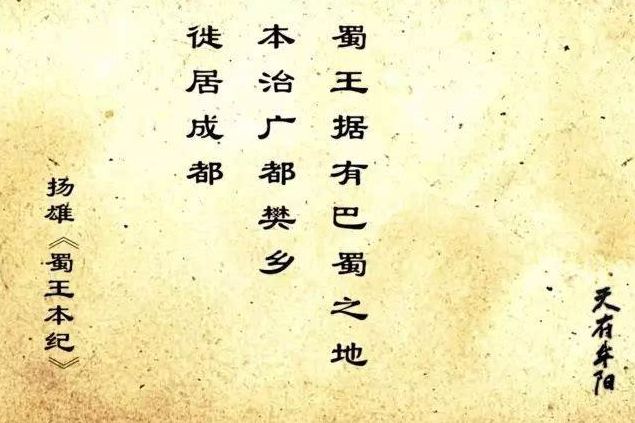 蜀王据有巴蜀之地
本治广都樊乡
徙居成都
扬雄《蜀王本纪》